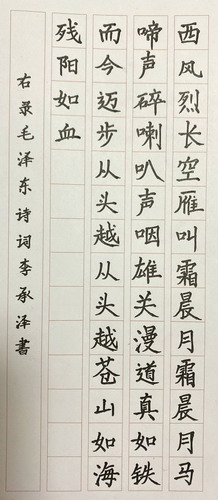 西风烈长空雁叫霜晨月霜晨月马
啼声碎喇叭声咽雄关漫道真如铁
而今迈步从头越从头越苍山如海
残阳如血
右录毛泽东诗词李承泽書